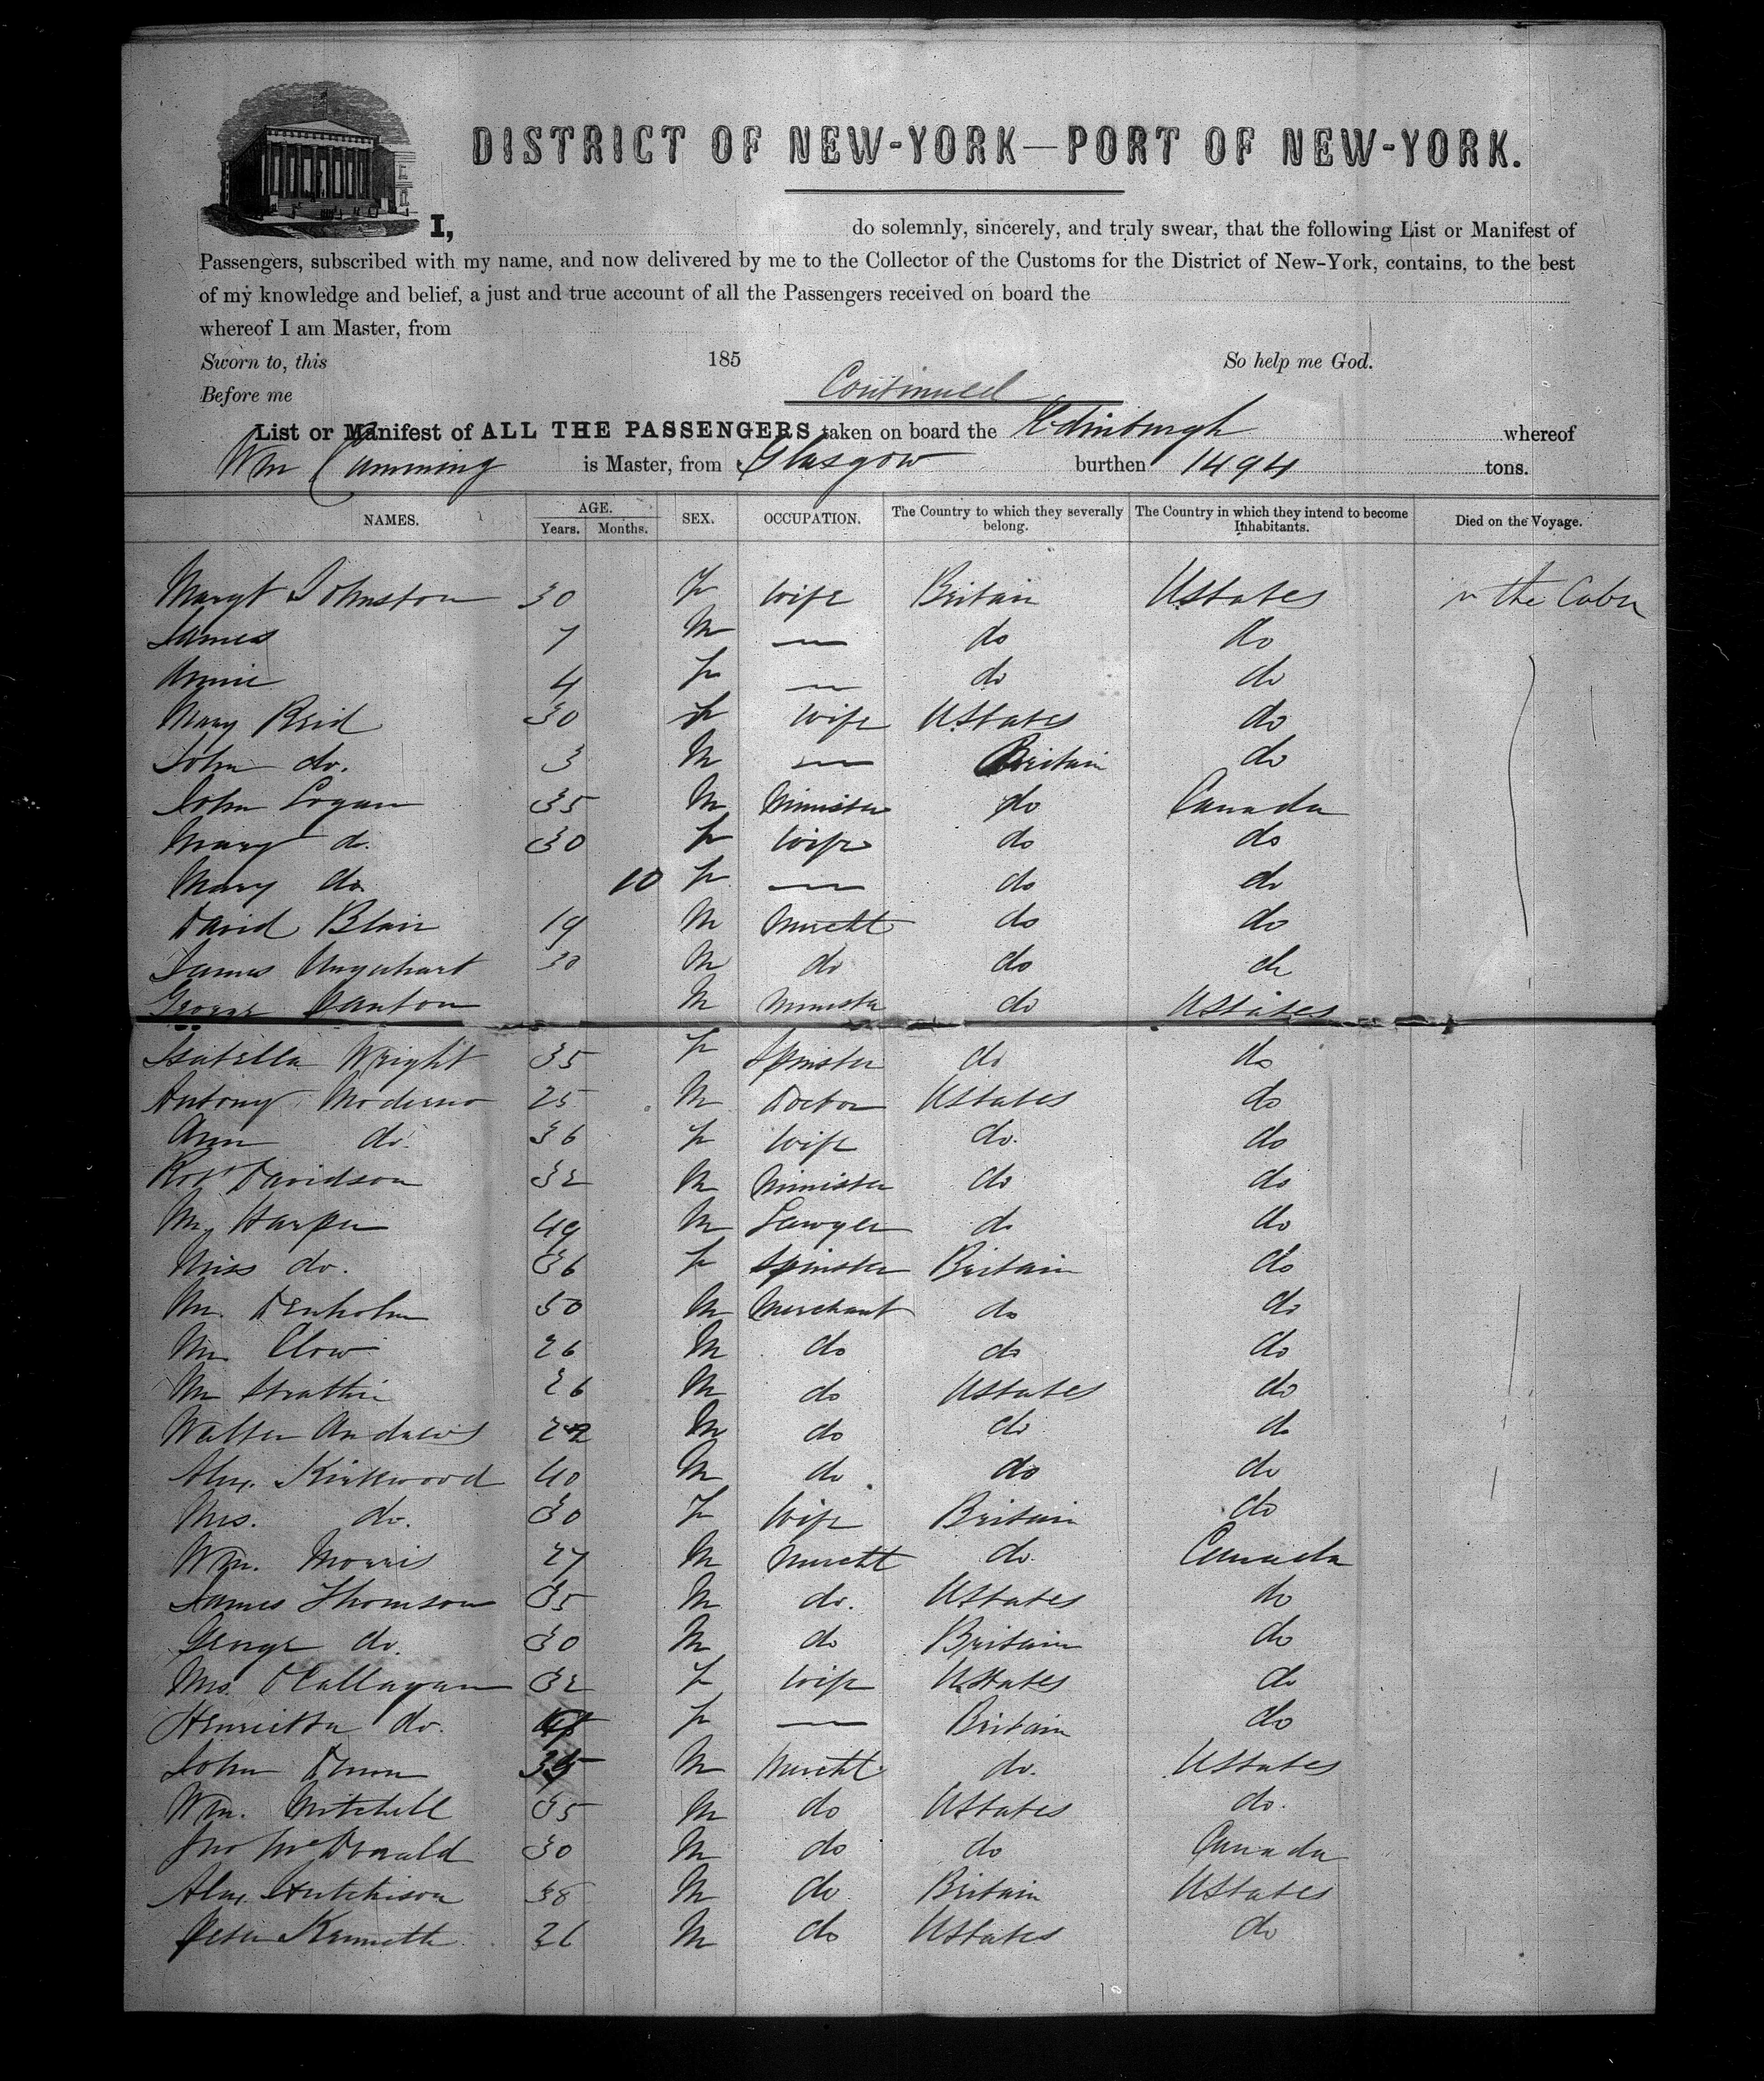 DISTRICT OF NEW-YORK—PORT OF NEW-YORK.
I, do solemnly, sincerely, and truly swear, that the following List or Manifest of
Passengers, subscribed with my name, and now delivered by me to the Collector of the Customs for the District of New-York, contains, to the best
of my knowledge and belief, a just and true account of all the Passengers received on board the
whereof I am Master, from
Sworn to, this 185 So help me God.
Before me
Continued
List or Manifest of ALL THE PASSENGERS taken on board the Edinburgh whereof
Wm Cumming is Master, from Glasgow burthen 1494 tons.
NAMES. AGE. Years. Months. SEX. OCCUPATION. The Country to which they severally belong. The Country in which they intend to become Inhabitants. Died on the Voyage.
Margt Johnston 30 F Wife Britain UStates in the Cabin
James 7 M — do do
Annie 4 F — do do
Mary Reid 30 F Wife UStates do
John do. 3 M — Britain do
John Logan 35 M Minister do Canada
Mary do. 30 F Wife do do
Mary do 10 F — do do
David Blair 19 M Mercht do do
James Urquhart 30 M do do do
George M Minister do UStates
Isabella Wright 35 F Spinster do do
Antony Moderno 25 M Doctor UStates do
Ann do. 36 F Wife do. do
Robt Davidson 32 M Minister do do
Mr Harper 49 M Lawyer do do
Miss do. 36 F Spinster Britain do
Mr. Denholm 50 M Merchant do do
Mr. Clow 26 M do do do
Mr Strathie 26 M do UStates do
Walter Andrews M do do do
Alex. Kirkwood 40 M do do do
Mrs. do. 30 F Wife Britain do
Wm. Morris 27 M Mercht do. Canada
James Thomson 35 M do. UStates do
George do. 30 M do Britain do
Mrs. OCallagan 32 F Wife UStates do
Henrietta do. F — Britain do
John M Mercht do. UStates
Wm. Mitchell 35 M do UStates do.
Jno McDonald 30 M do do Canada
Alex. Hutchison 38 M do Britain UStates
Peter Kenneth 26 M do UStates do